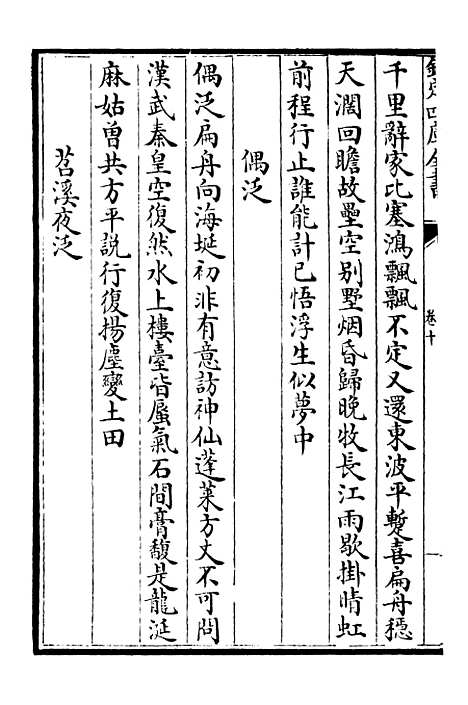 欽定四庫全書
卷十
千里辭家比塞鴻飄飄不定又還東波平蹔喜扁舟穩
天濶回瞻故壘空别墅烟昏歸晚牧長江雨歇掛晴虹
前程行止誰能計已悟浮生似夢中
偶泛
偶泛扁舟向海埏初非有意訪神仙蓬萊方丈不可問
漢武秦皇空復然水上樓臺皆蜃氣石間膏馥是龍涎
麻姑曾共方平説行復揚塵變土田
苕溪夜泛